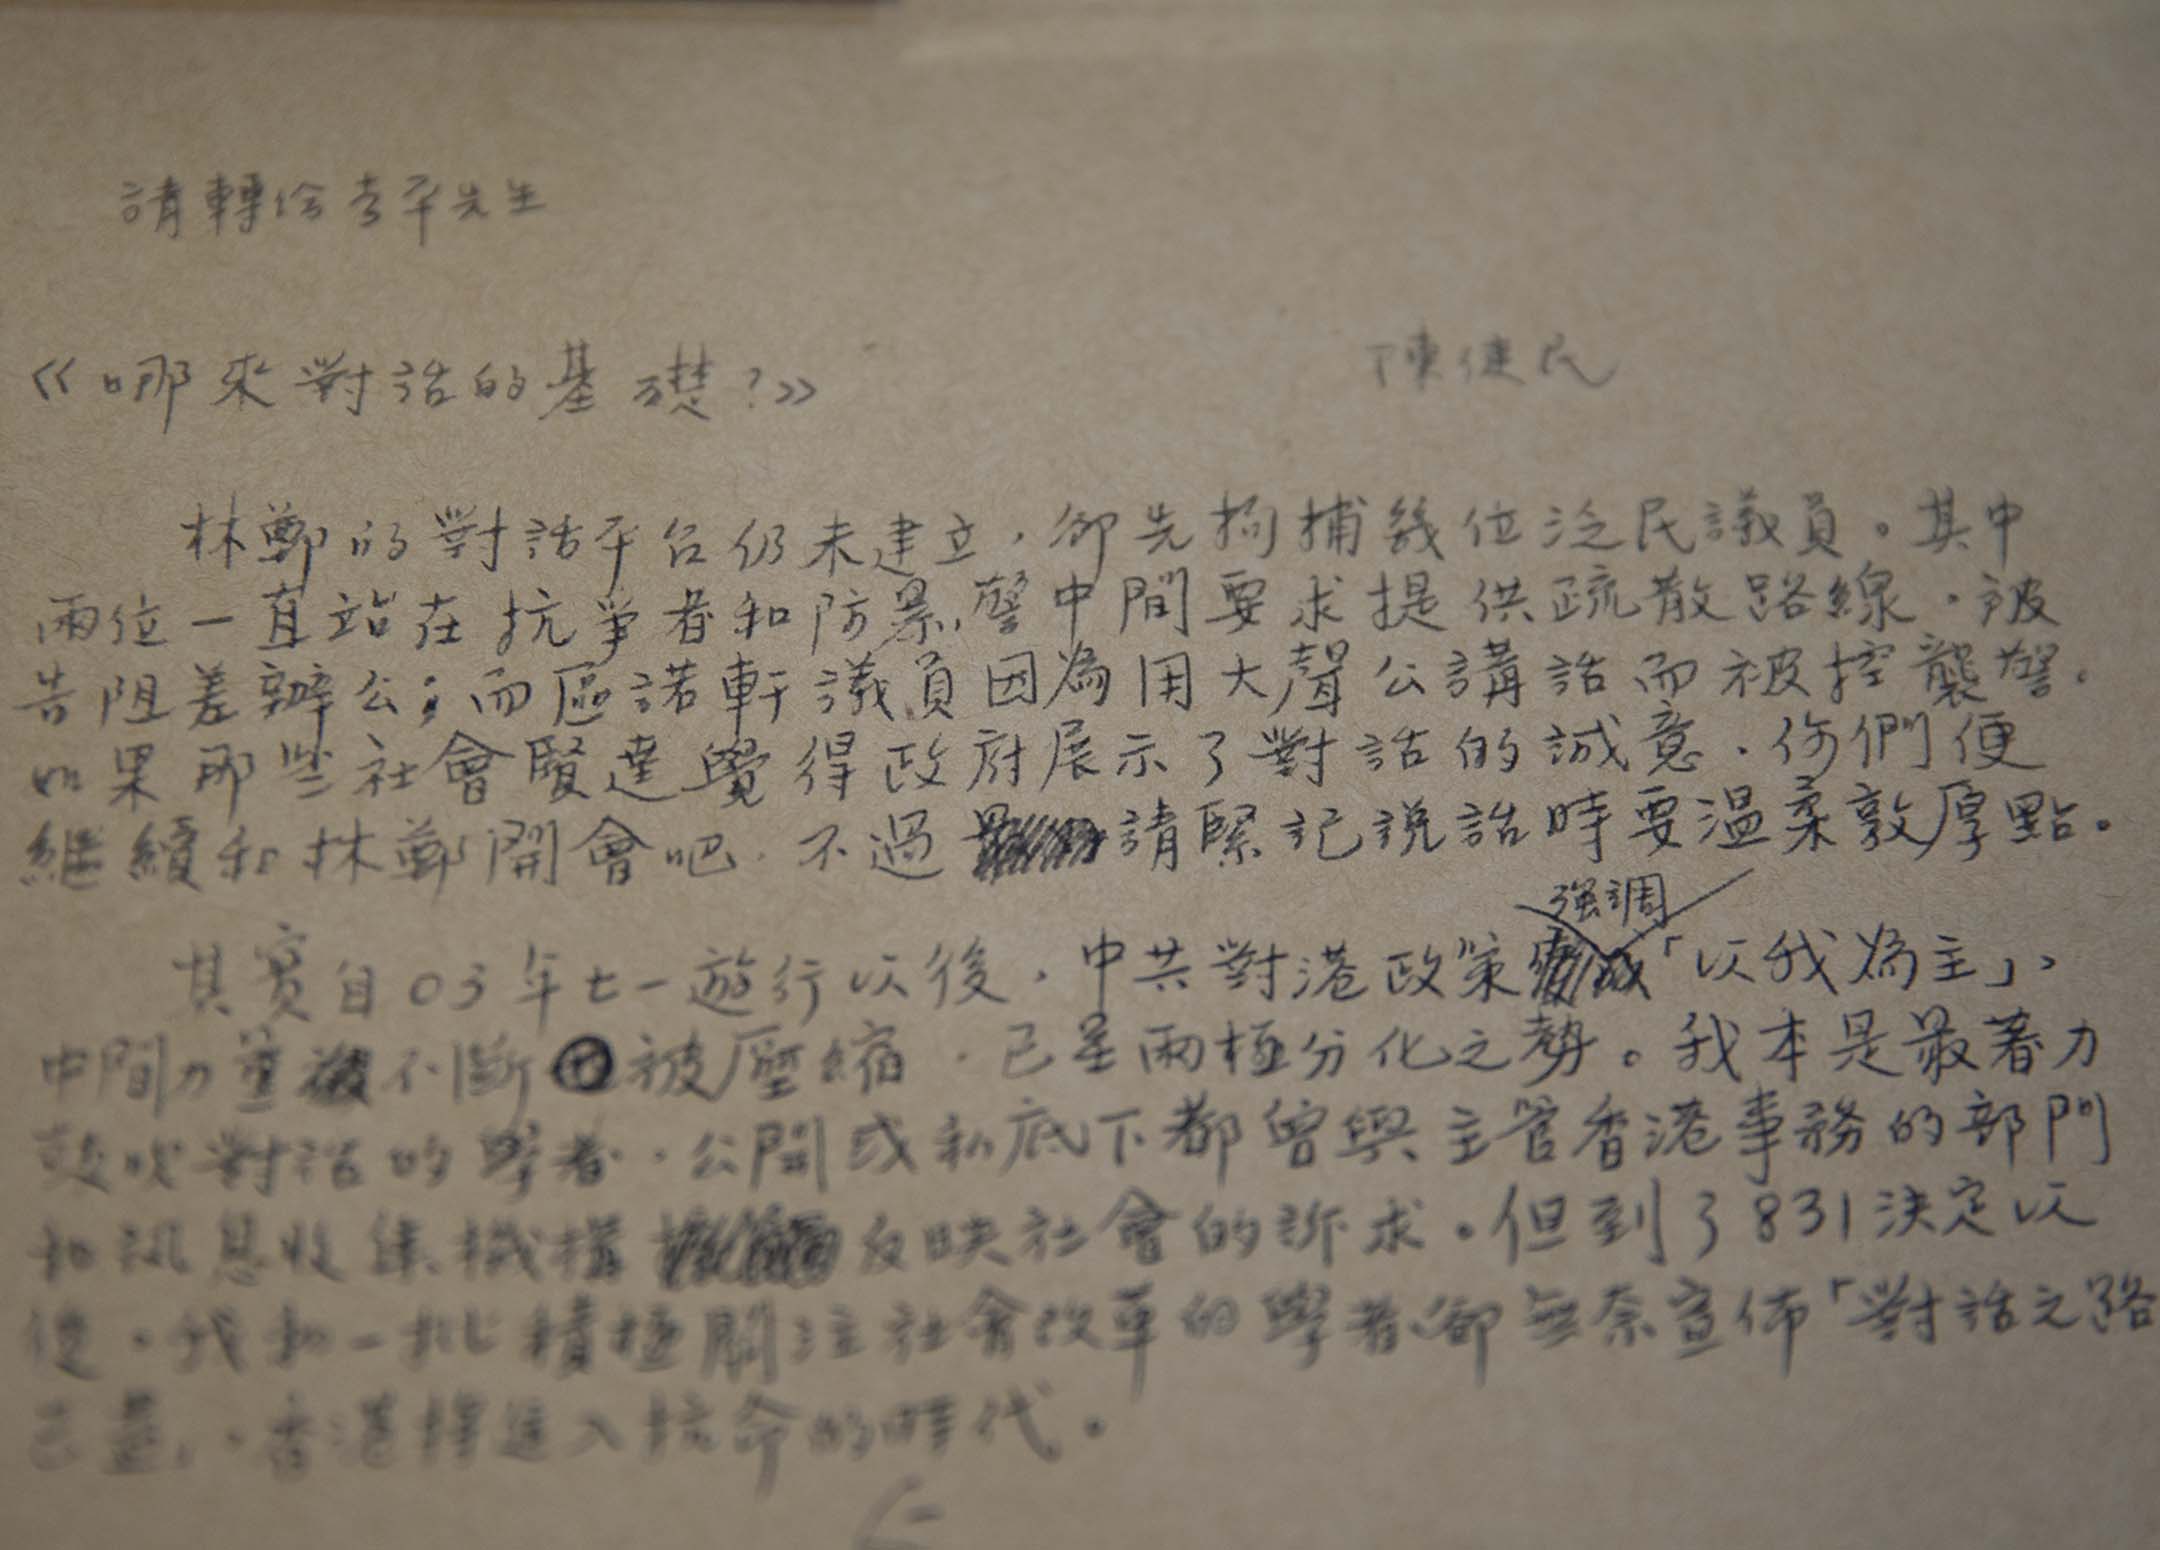 請轉給李平先生
《哪來對話的基礎?》 陳健民
林鄭的對話平台仍未建立,卻先拘捕幾位泛民議員。其中
兩位一直站在抗爭者和防暴警中間要求提供疏散路線,被
告阻差辦公;而區諾軒議員因為用大聲公講話而被控襲警。
如果那些社會賢達覺得政府展示了對話的誠意,你們便
繼續和林鄭開會吧,不過請緊記說話時要溫柔敦厚點。
強調
其實自03年七一遊行以後,中共對港政策「以我為主」、
中間力量不斷被壓縮,已呈兩極分化之勢。我本是最著力
鼓吹對話的學者,公開或私底下都曾與主管香港事務的部門
和訊息收集機構反映社會的訴求。但到了831決定以
後,我和一批積極關注社會改革的學者卻無奈宣佈「對話之路
已盡」,香港將進入抗命的時代。